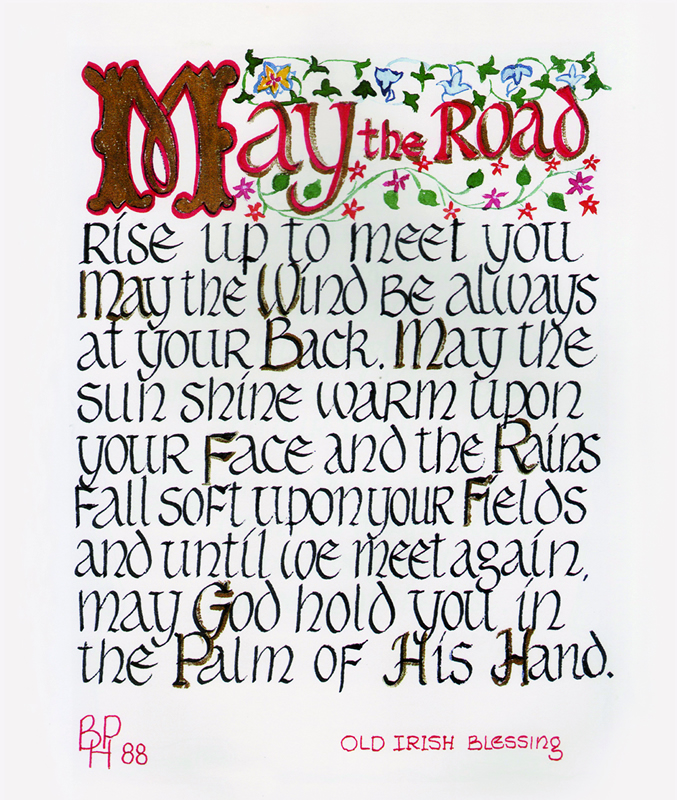 May the Road
Rise up to meet you
May the Wind Be always
at your Back. May the
sun shine warm upon
your Face and the Rains
Fall soft upon your Fields
and until we meet again,
may God hold you in
the Palm of His Hand.
BPH 88
OLD IRISH Blessing